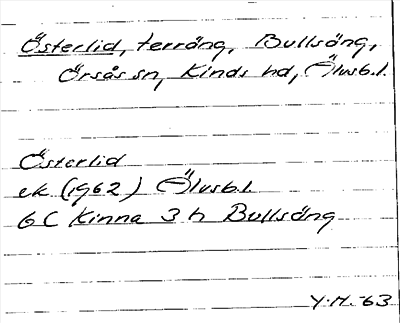 Österlid, terräng, Bullsäng,
Örsås sn, Kinds hd, Älvsb.l.
Österlid
ek (1962) Älvsb.l
6 C Kinna 3 h Bullsäng
Y.M. -63